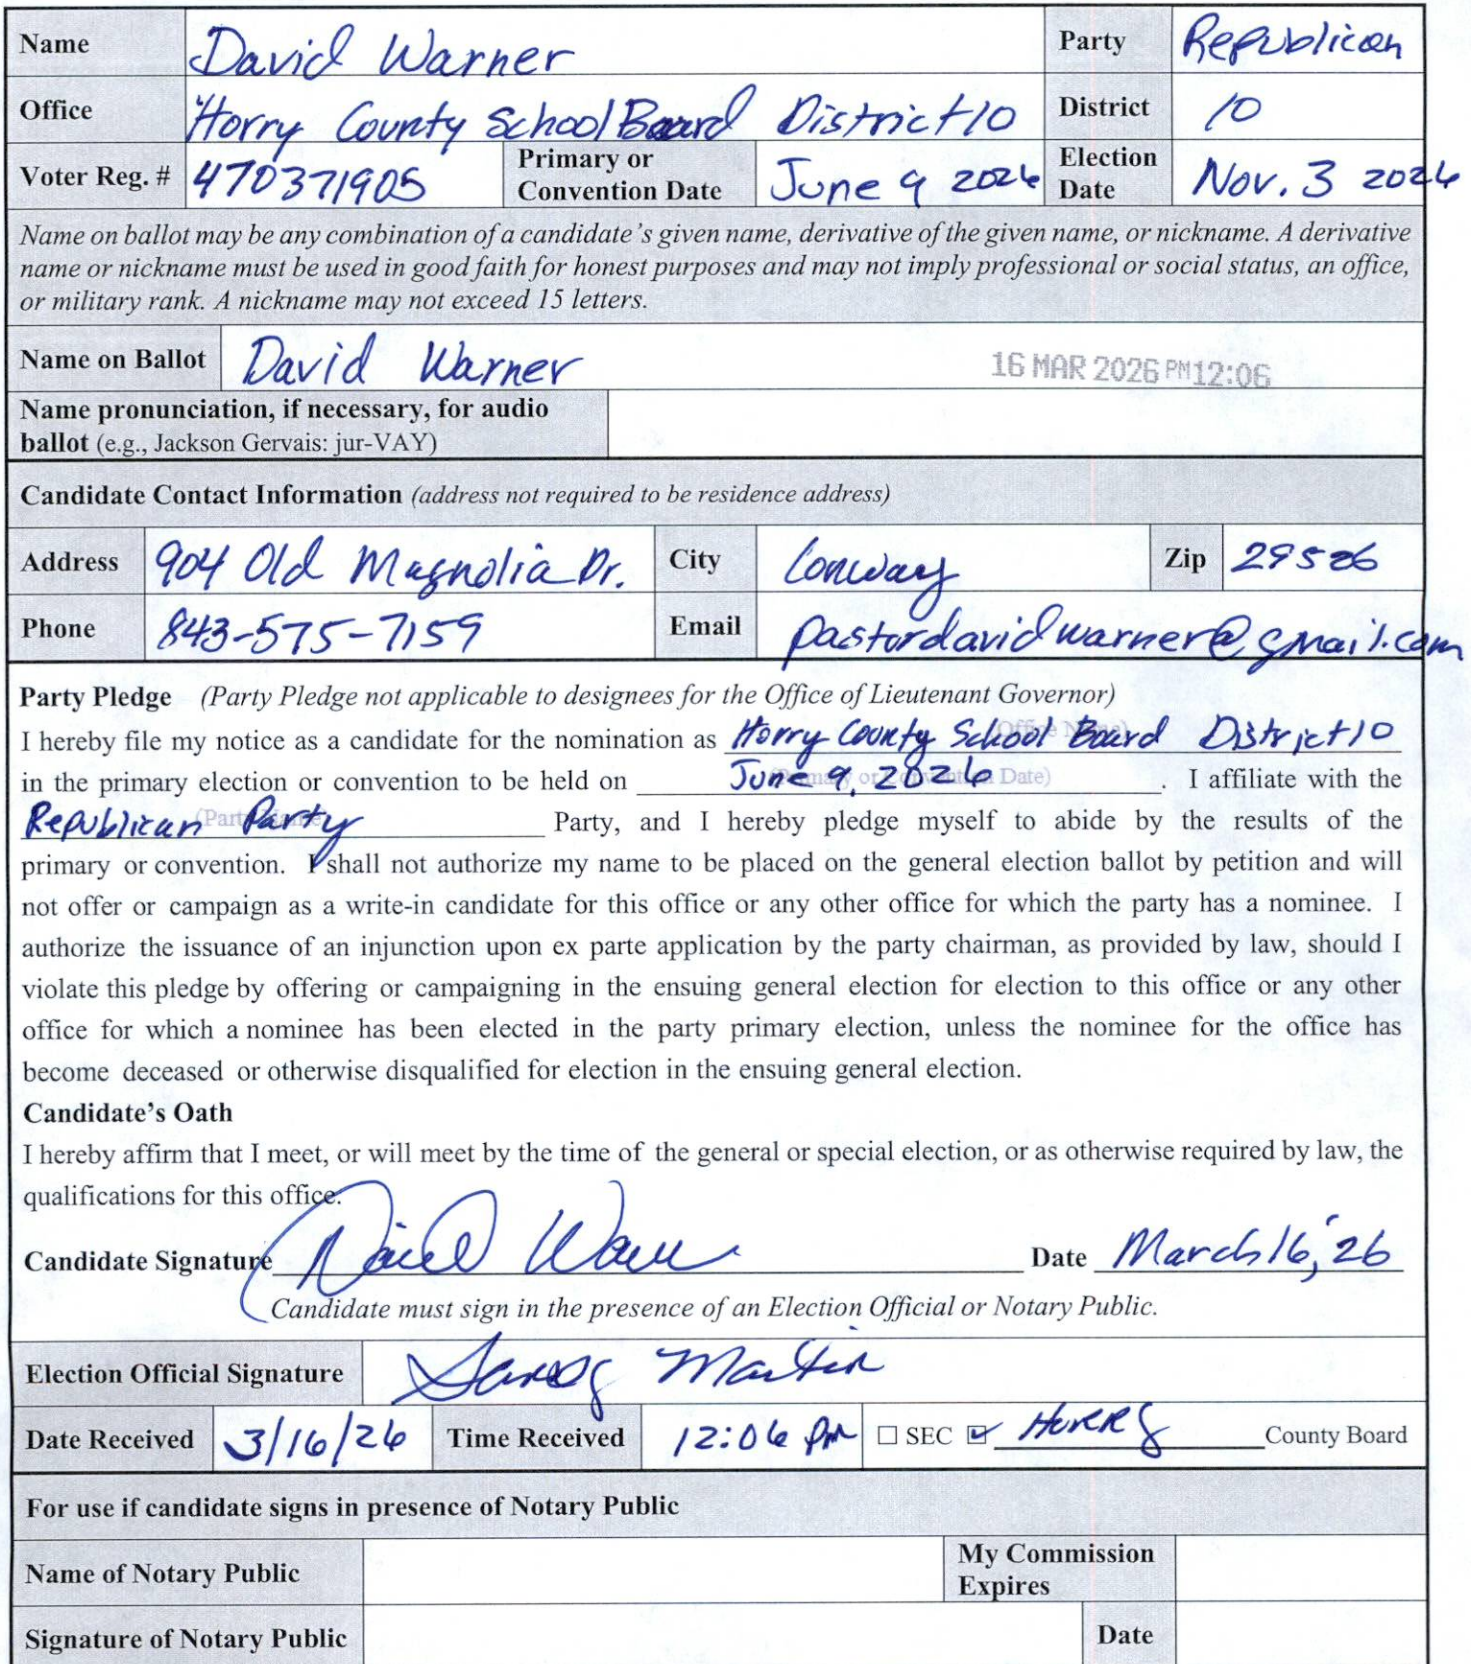 Name David Warner Party Republican
Office Horry County School Board District 10 District 10
Voter Reg. # 470371905 Primary or Convention Date June 9 2026 Election Date Nov. 3 2026
Name on ballot may be any combination of a candidate's given name, derivative of the given name, or nickname. A derivative
name or nickname must be used in good faith for honest purposes and may not imply professional or social status, an office,
or military rank. A nickname may not exceed 15 letters.
Name on Ballot David Warner 16 MAR 2026 PM12:06
Name pronunciation, if necessary, for audio
ballot (e.g., Jackson Gervais: jur-VAY)
Candidate Contact Information (address not required to be residence address)
Address 904 Old Magnolia Dr. City Conway Zip 29526
Phone 843-575-7159 Email pastordavidwarner@gmail.com
Party Pledge (Party Pledge not applicable to designees for the Office of Lieutenant Governor)
I hereby file my notice as a candidate for the nomination as Horry County School Board District 10
in the primary election or convention to be held on June 9, 2026. I affiliate with the
Republican Party Party, and I hereby pledge myself to abide by the results of the
primary or convention. I shall not authorize my name to be placed on the general election ballot by petition and will
not offer or campaign as a write-in candidate for this office or any other office for which the party has a nominee. I
authorize the issuance of an injunction upon ex parte application by the party chairman, as provided by law, should I
violate this pledge by offering or campaigning in the ensuing general election for election to this office or any other
office for which a nominee has been elected in the party primary election, unless the nominee for the office has
become deceased or otherwise disqualified for election in the ensuing general election.
Candidate's Oath
I hereby affirm that I meet, or will meet by the time of the general or special election, or as otherwise required by law, the
qualifications for this office.
Candidate Signature David Warner Date March 16, '26
Candidate must sign in the presence of an Election Official or Notary Public.
Election Official Signature Martin
Date Received 3/16/26 Time Received 12:06 PM ☐ SEC ☑ Horry County Board
For use if candidate signs in presence of Notary Public
Name of Notary Public My Commission Expires
Signature of Notary Public Date